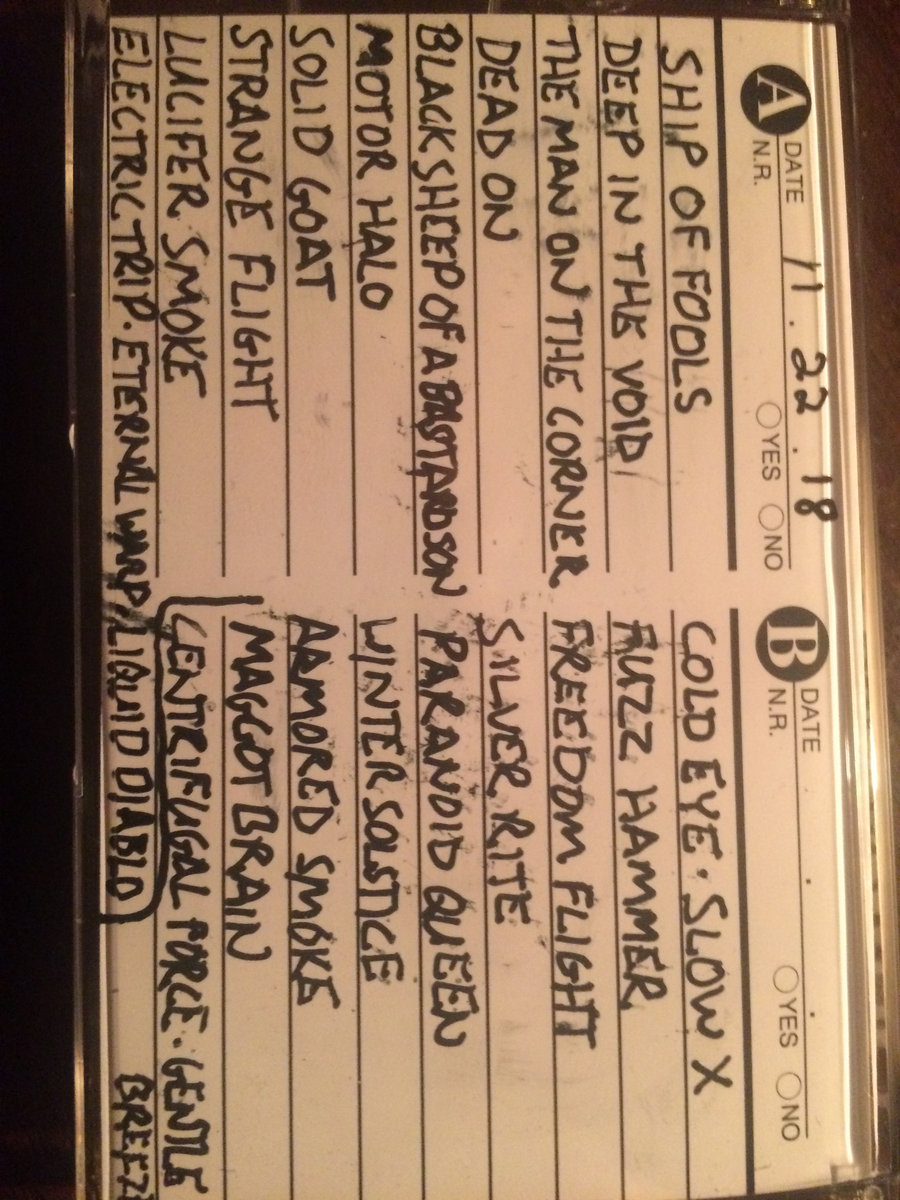 A DATE 11.22.18
N.R. YES NO
SHIP OF FOOLS
DEEP IN THE VOID
THE MAN ON THE CORNER
DEAD ON
BLACK SHEEP OF A BASTARD SON
MOTOR HALO
SOLID GOAT
STRANGE FLIGHT
LUCIFER SMOKE
ELECTRIC TRIP. ETERNAL WARP/LIQUID DIABLO
B DATE . .
N.R. YES NO
COLD EYE · SLOW X
FUZZ HAMMER
FREEDOM FLIGHT
SILVER RITE
PARANOID QUEEN
WINTER SOLSTICE
ARMORED SMOKE
MAGGOT BRAIN
CENTRIFUGAL FORCE · GENTLE
BREEZE